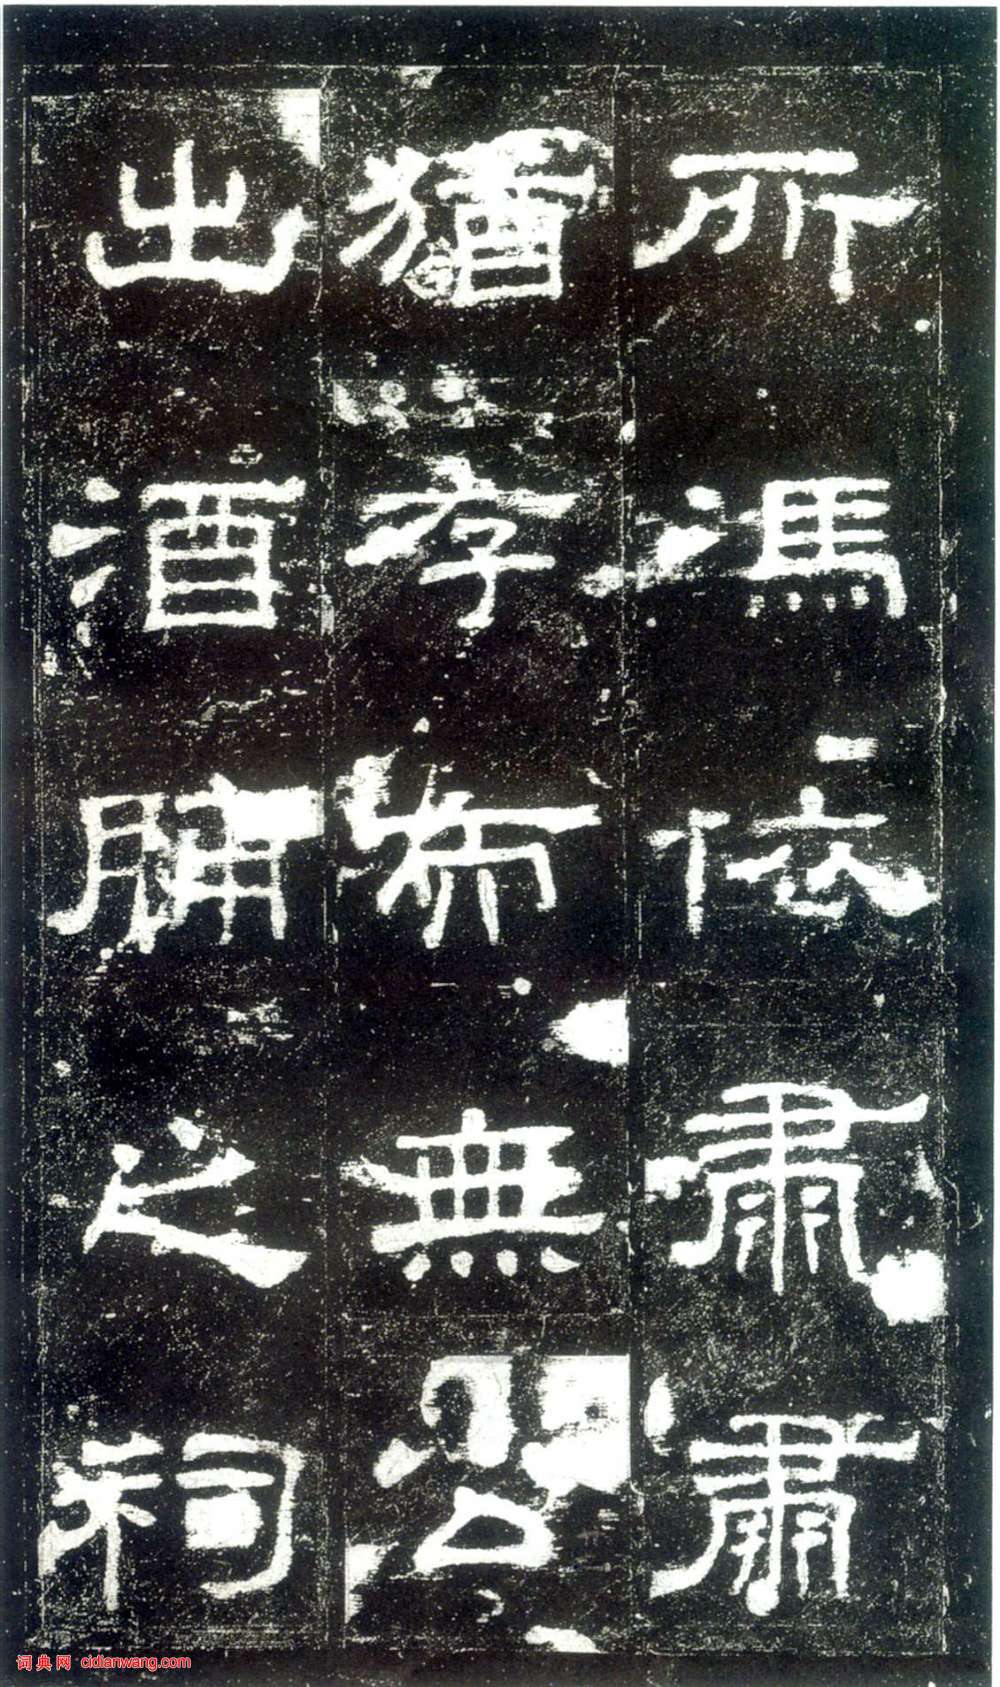 所馮依肅肅
猶存而無公
出酒脯之祠
词典网 cidianwang.com